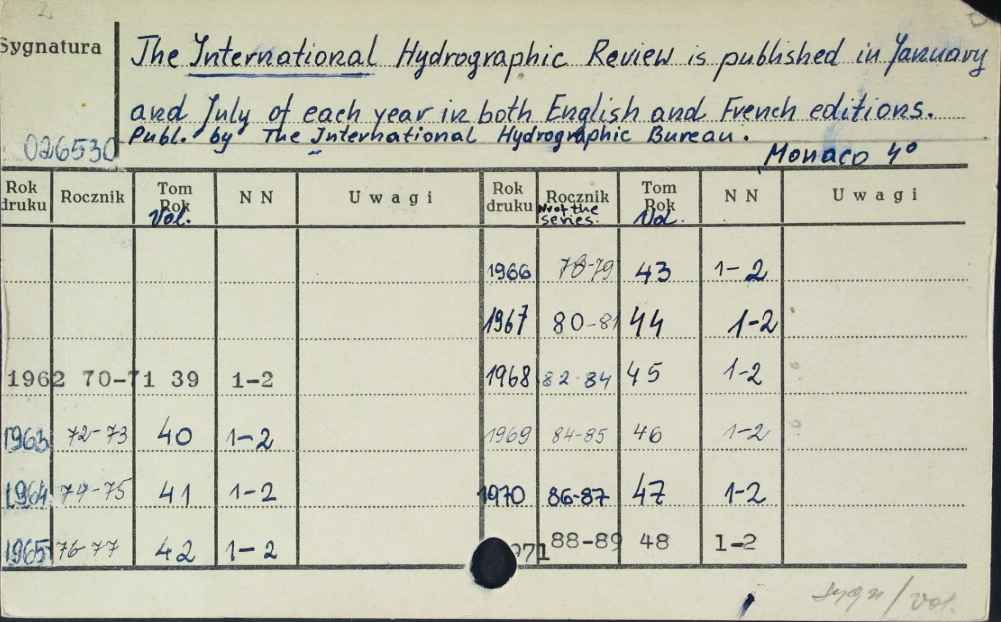 2
Sygnatura
The International Hydrographic Review is published in January
and July of each year in both English and French editions.
Publ. by The International Hydrographic Bureau.
026530
Monaco 4°
Rok druku Rocznik Tom Rok Vol. N N Uwagi Rok druku Rocznik Nr of the series. Tom Rok Vol. N N Uwagi
1966 78-79 43 1-2
1967 80-81 44 1-2
1962 70-71 39 1-2 1968 82-84 45 1-2
1963 72-73 40 1-2 1969 84-85 46 1-2
1964 74-75 41 1-2 1970 86-87 47 1-2
1965 76-77 42 1-2 1971 88-89 48 1-2
Sygn / Vol.